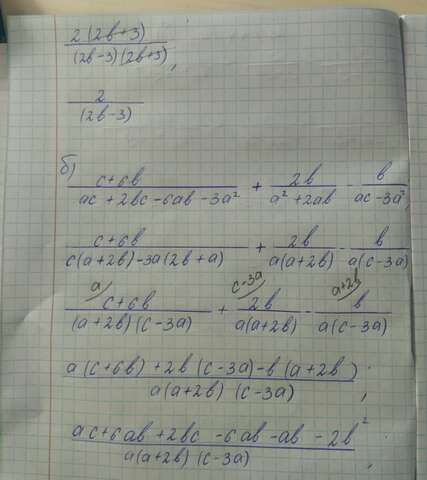 2(2b+3)
(2b-3)(2b+3),
2
(2b-3)
б) c+6b / ac+2bc-6ab-3a² + 2b / a²+2ab - b / ac-3a²,
c+6b / c(a+2b)-3a(2b+a) + 2b / a(a+2b) - b / a(c-3a)
a c-3a a+2b
c+6b / (a+2b)(c-3a) + 2b / a(a+2b) - b / a(c-3a)
a(c+6b)+2b(c-3a)-b(a+2b)
a(a+2b)(c-3a) ;
ac+6ab+2bc-6ab-ab-2b²
a(a+2b)(c-3a) ;